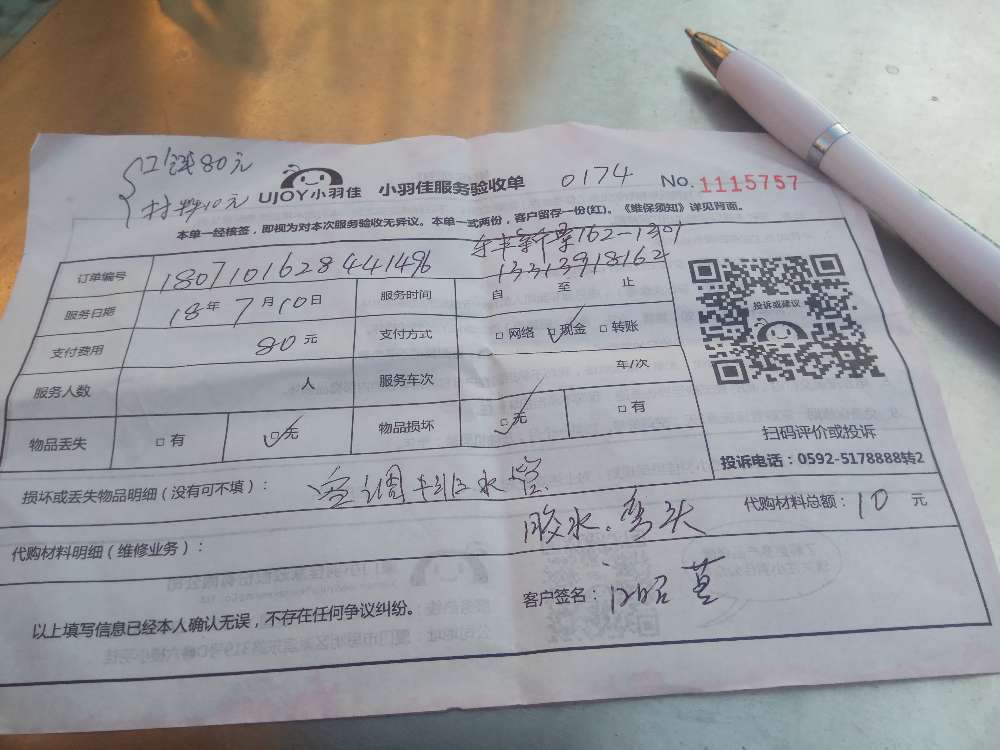 工钱80元
材料10元
UJOY小羽佳 小羽佳服务验收单 0174 No. 1115757
本单一经核签，即视为对本次服务验收无异议。本单一式两份，客户留存一份(红)。《维保须知》详见背面。
162-1301
订单编号 1807101628441496 13313918162
服务日期 18年7月10日 服务时间 自 至 止
支付费用 80元 支付方式 □网络 □现金 □转账
服务人数 人 服务车次 车/次
物品丢失 □有 □无 物品损坏 □无 □有
投诉或建议
扫码评价或投诉
投诉电话：0592-5178888转2
损坏或丢失物品明细（没有可不填）： 空调 水管
代购材料明细（维修业务）： 胶水、弯头 代购材料总额：10 元
以上填写信息已经本人确认无误，不存在任何争议纠纷。 客户签名：